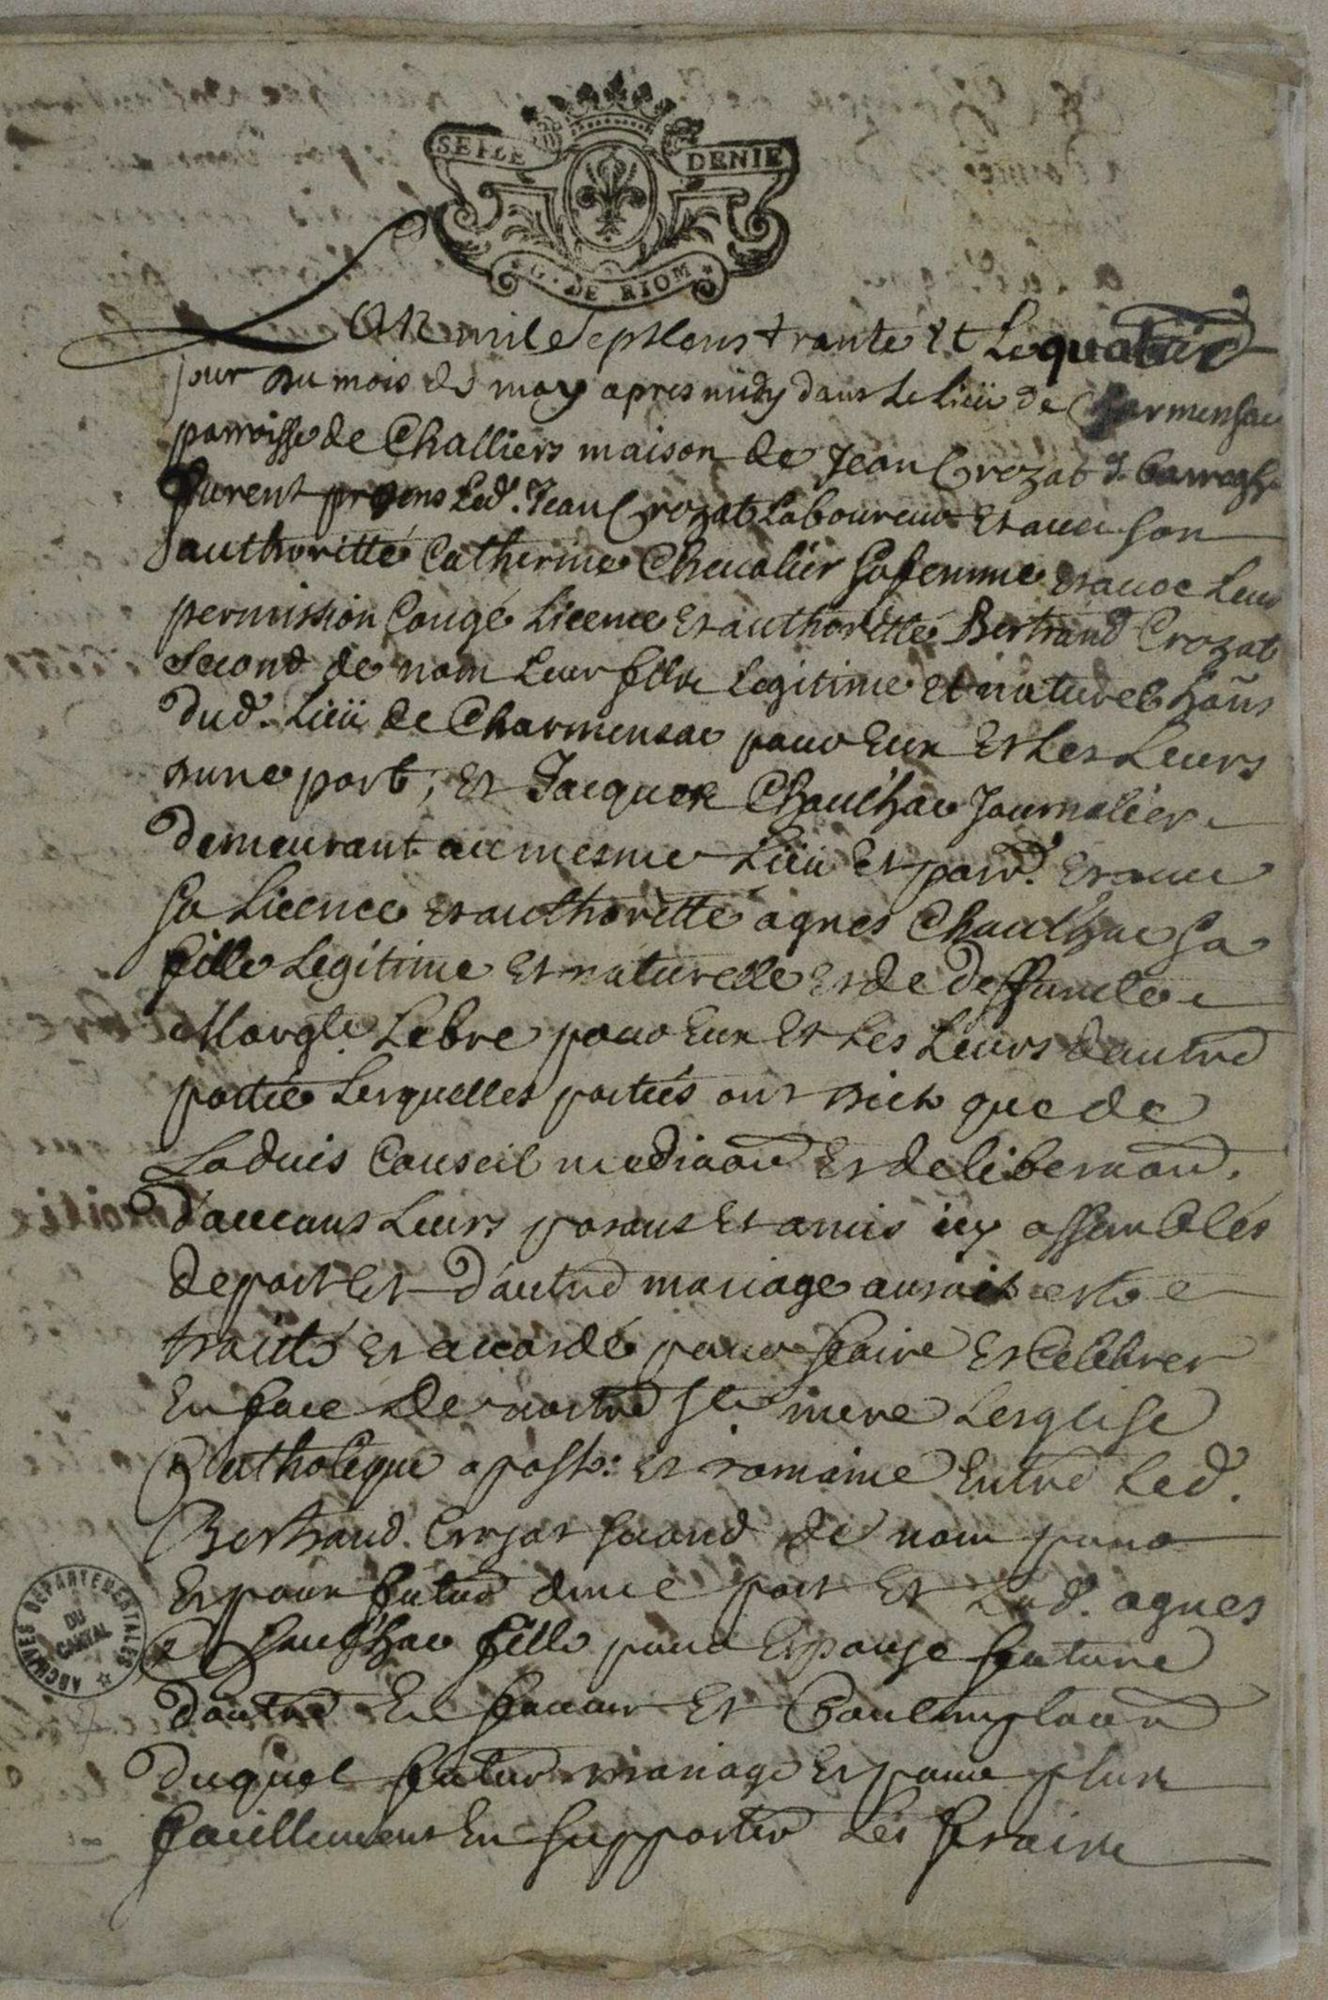 SEPT DENIE
G. DE RIOM
Lan mil sept cens trante et le quatrie
jour du mois de may apres midy dans le lieu de Charmensac
parroisse de Challiers maison de Jean Crozat
furent prezens led. Jean Crozat laboureur et avec son
authoritté Catherine Chevalier sa femme et avec leur
permission congé licence et authoritté Bertrand Crozat
second de nom leur filx legitime et naturel hans
dud. lieu de Charmensac pour eux et les leurs
dune part, et Jacques Chaulhac journalier
demeurant au mesme lieu et parr. et avec
sa licence et authoritté agnes Chaulhac sa
fille legitime et naturelle et de deffuncte
Margte. Lebre pour eux et les leurs dautre
partie lesquelles parties ont dict que de
ladvis conseil mediaon et deliberaon
daucuns leurs parens et amis icy assamblés
de part et dautre mariage auroit esté
traitté et accordé pour faire et celebrer
en face de nostre ste mere lesglise
Catholique apost: et romaine entre led.
Bertrand Crozat second de nom pour
espoux futur dune part et lad. agnes
Chaulhac fille pour espouse future
dautre en faveur et contemplaon
duquel futur mariage et pour plux
facillement en supporter les fraix
ARCHIVES DEPARTEMENTALES
DU
CANTAL